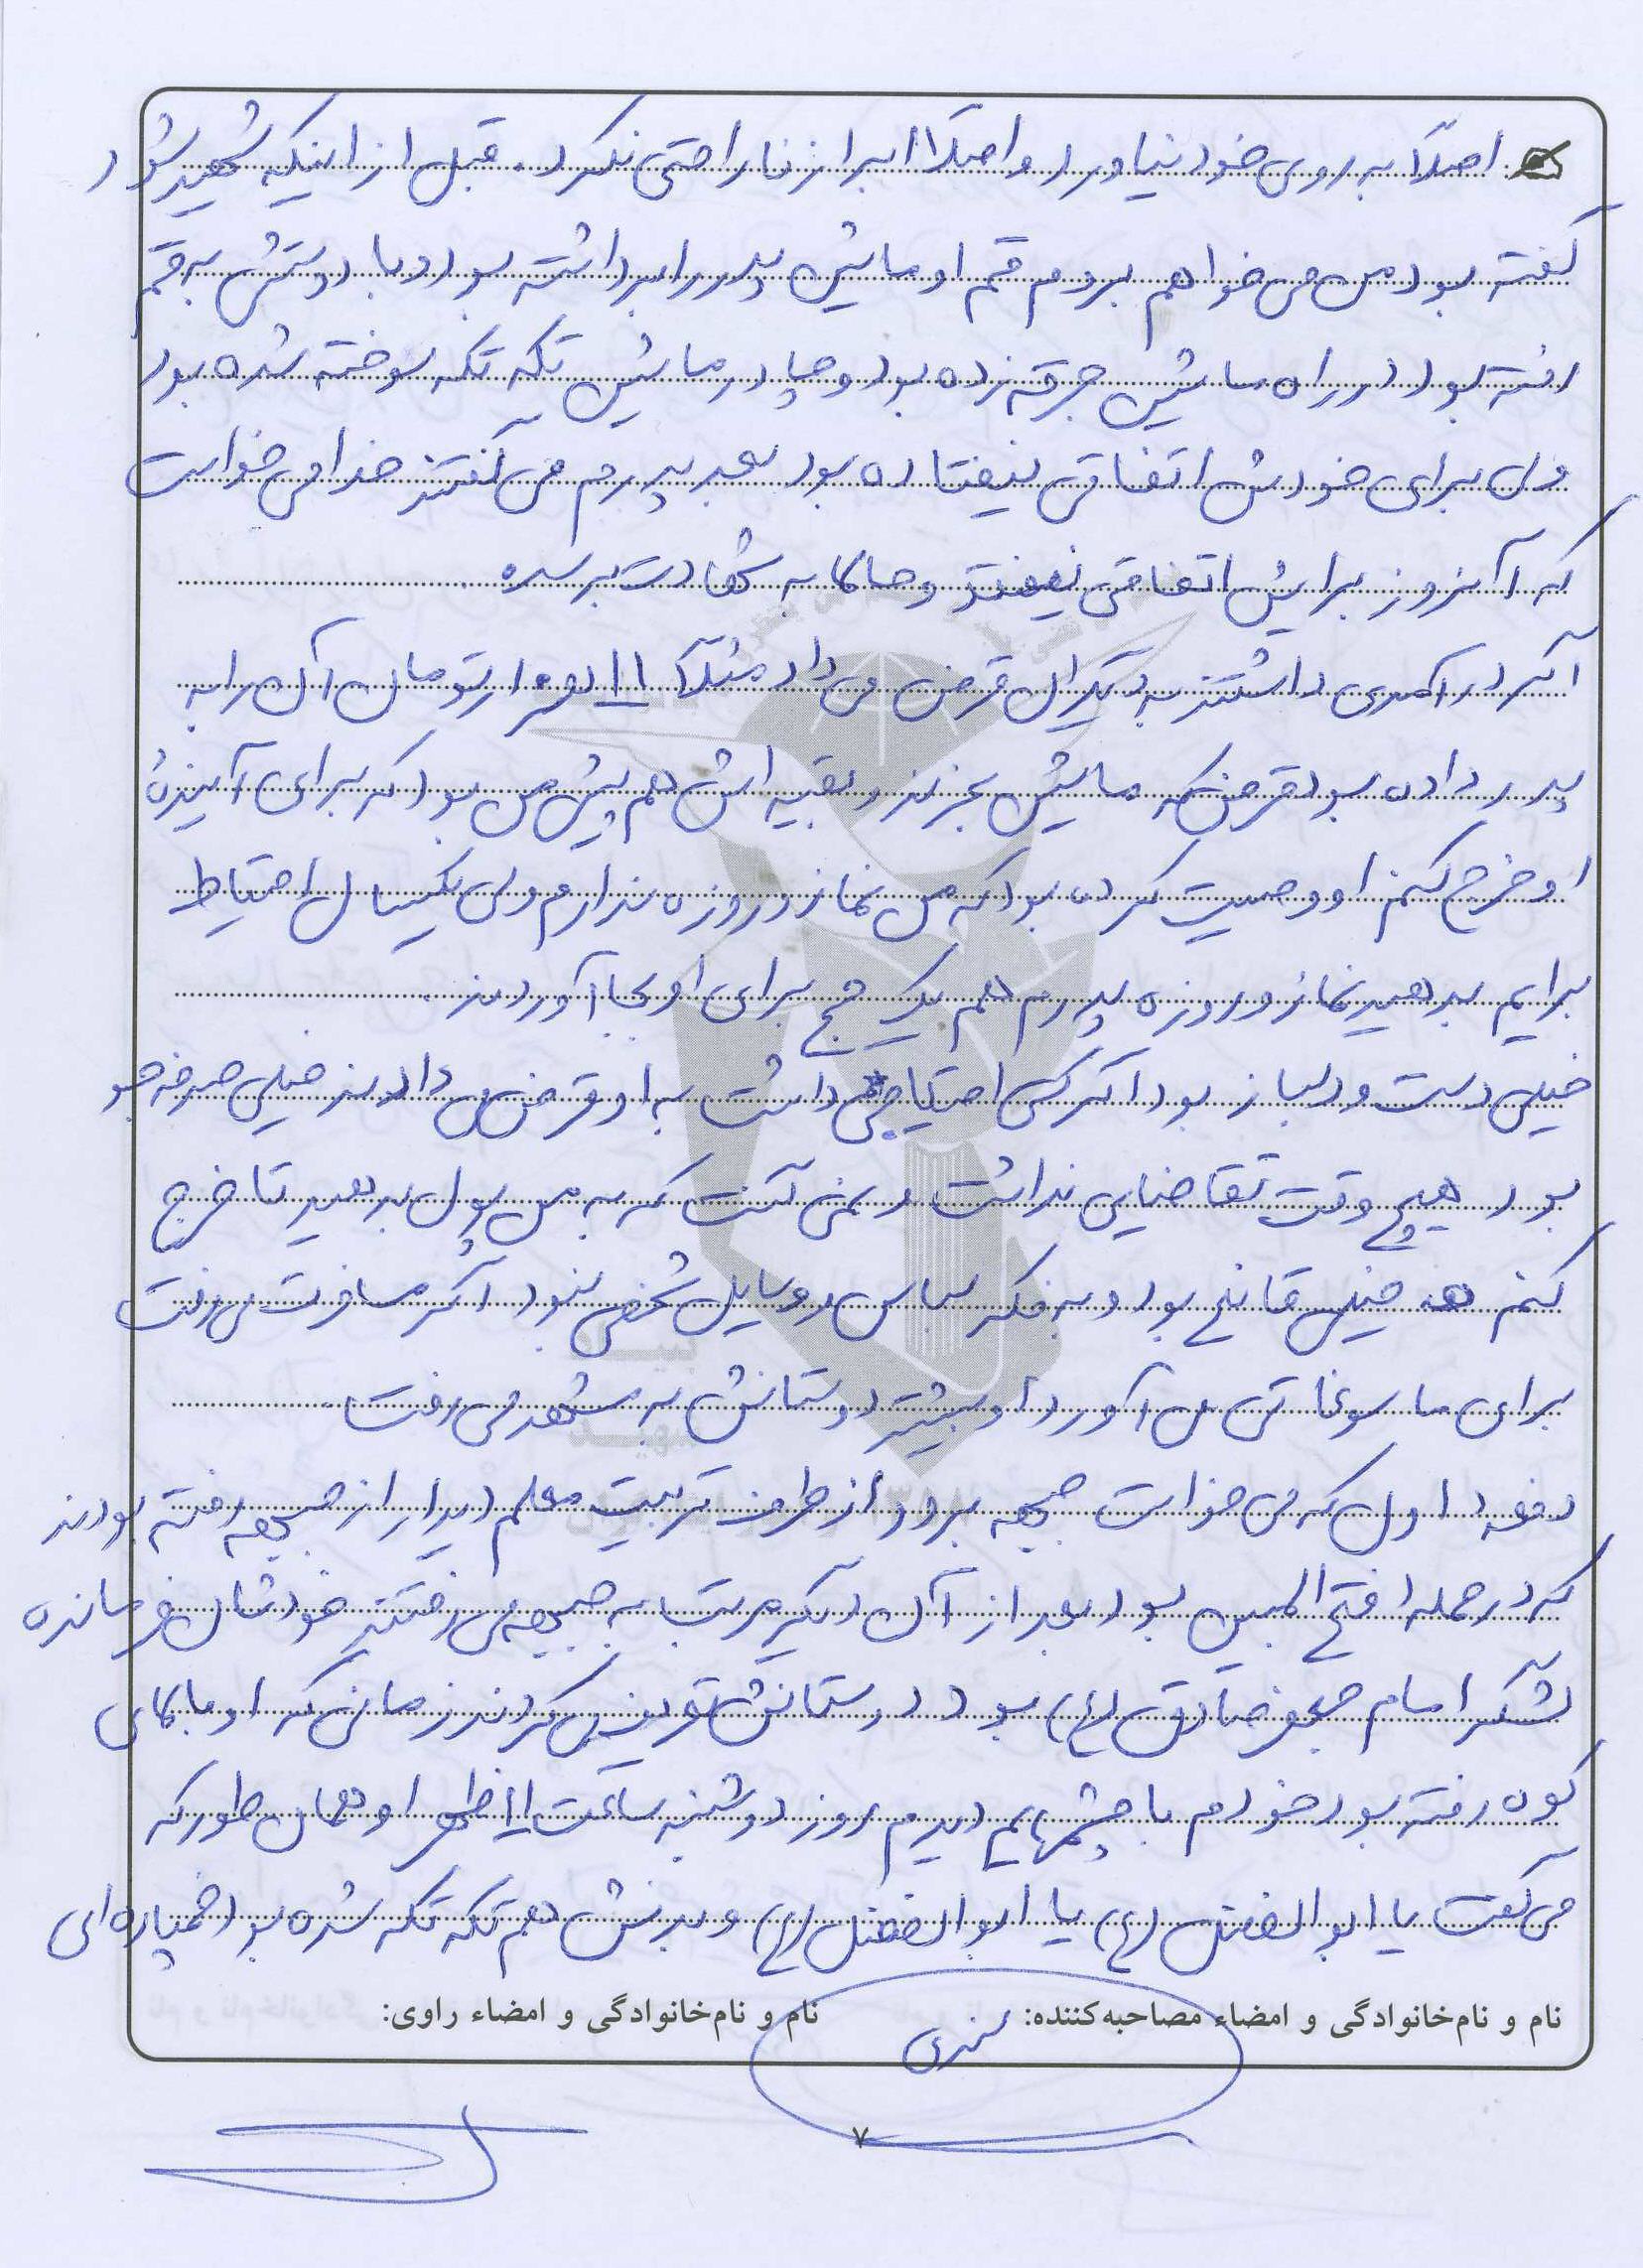 اصلاً به روی خود نیاورد و اصلاً ابراز ناراحتی نکرد. قبل از اینکه شهید شود
گفته بود من می خواهم بروم قم او ماشین پدر را برداشته بود و با دوستش به قم
رفته بود در راه ماشین جرقه زده بود و چادر ماشین تکه تکه سوخته شده بود
ولی برای خودش اتفاقی نیفتاده بود بعد پدرم می گفتند خدا می خواست
که آنروز برایش اتفاقی نیفتد و حالا به شهادت برسد.
اگر درآمدی داشتند به دیگران قرض می داد مثلاً هزار تومان آن را به
پدر داده بود قرض که ماشین بخرند و بقیه اش هم پیش من بود که برای آیندهٔ
او خرج کنم او وصیت کرده بود که من نماز و روزه ندارم ولی یکسال احتیاط
برایم بدهید نماز و روزه پدرم هم یک حج برای او بجا آوردند.
خیلی دست و دلباز بود اگر کسی احتیاجی داشت به او قرض می دادند خیلی صرفه جو
بود هیچ وقت تقاضایی نداشت و نمی گفت که به من پول بدهید تا خرج
کنم خیلی قانع بود و به فکر لباس و وسایل شخصی نبود اگر مسافرت می رفت
برای ما سوغاتی می آورد او بیشتر دوستانش به مشهد می رفت.
دفعه اول که می خواست جبهه برود از طرف تربیت معلم دیدار از جبهه رفته بودند
که در حمله فتح المبین بود بعد از آن دیگر مرتب به جبهه می رفتند خودشان فرمانده
لشگر امام جعفر صادق (ع) بود دوستانش تعریف می کردند زمانی که او بالای
کوه رفته بود خودم با چشمهایم دیدم روز دوشنبه ساعت ۱۱ ظهر او همان طور که
می گفت یا ابوالفضل (ع) یا ابوالفضل (ع) و بدنش هم تکه تکه شده بود خمپاره ای
نام و نام‌خانوادگی و امضاء مصاحبه‌کننده: نام و نام‌خانوادگی و امضاء راوی:
۷